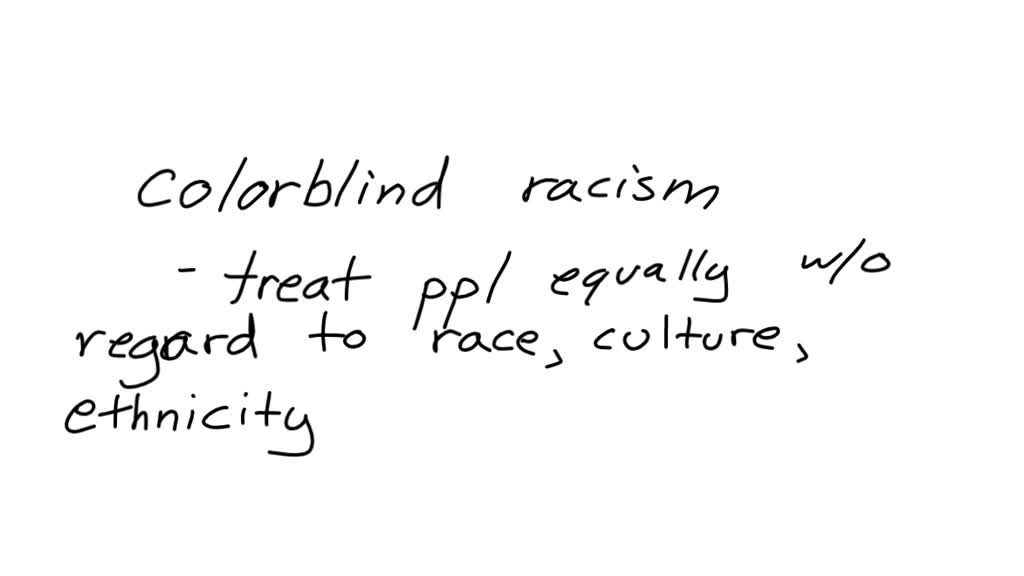 Colorblind racism
- treat ppl equally w/o
regard to race, culture,
ethnicity